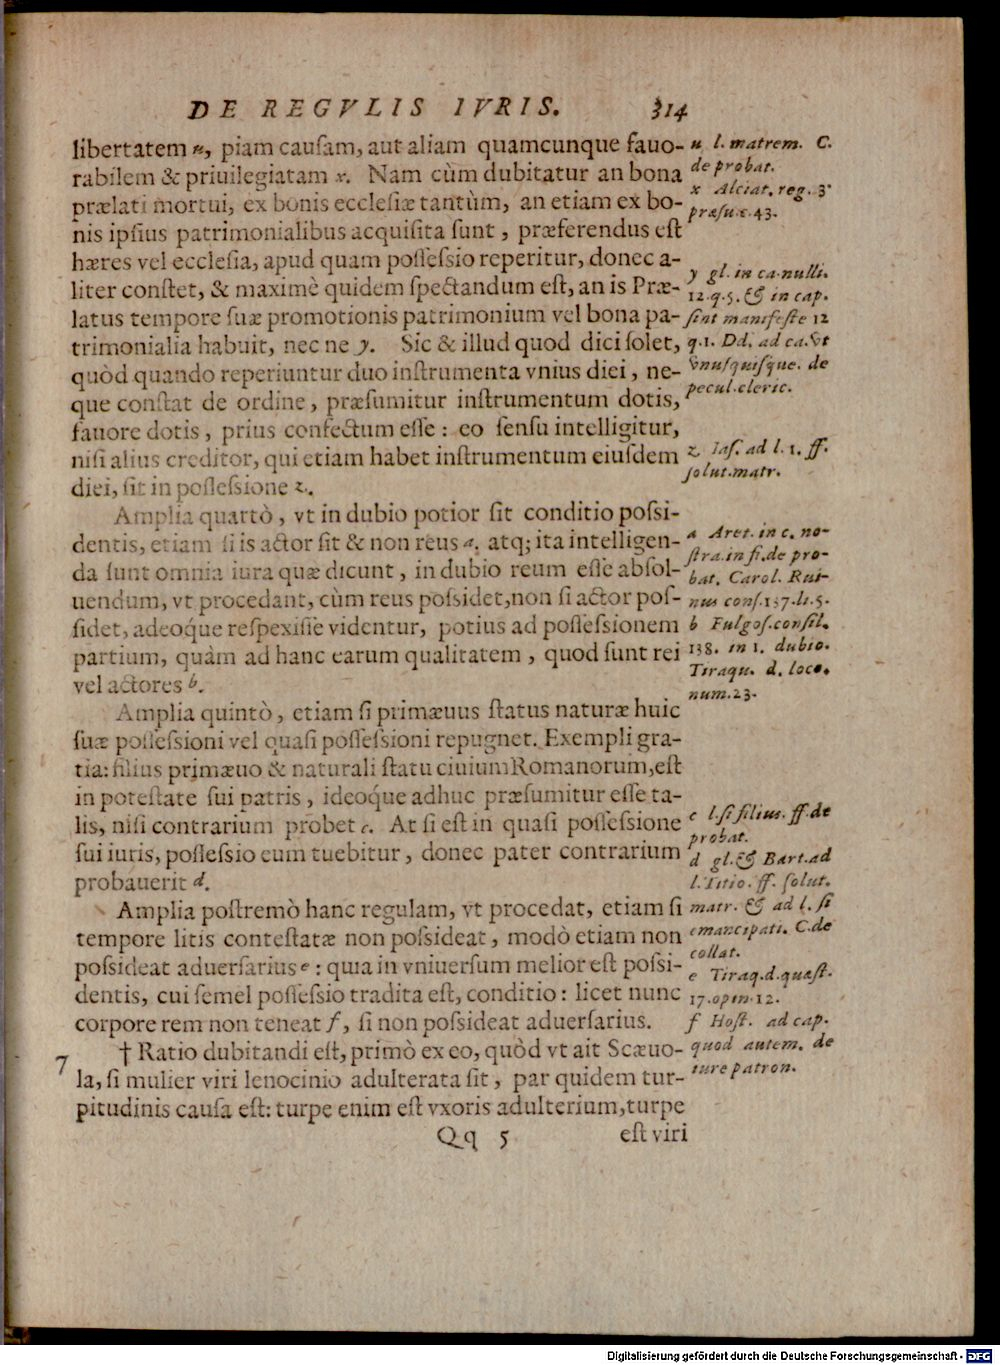 DE REGVLIS IVRIS. 314
libertatem u, piam cauſam, aut aliam quamcunque fauo-
rabilem & priuilegiatam x. Nam cùm dubitatur an bona
prælati mortui, ex bonis eccleſiæ tantùm, an etiam ex bo-
nis ipſius patrimonialibus acquiſita ſunt, præferendus eſt
hæres vel eccleſia, apud quam poſſeſsio reperitur, donec a-
liter conſtet, & maximè quidem ſpectandum eſt, an is Præ-
latus tempore ſuæ promotionis patrimonium vel bona pa-
trimonialia habuit, nec ne y. Sic & illud quod dici ſolet,
quòd quando reperiuntur duo inſtrumenta vnius diei, ne-
que conſtat de ordine, præſumitur inſtrumentum dotis,
fauore dotis, prius confectum eſſe: eo ſenſu intelligitur,
niſi alius creditor, qui etiam habet inſtrumentum eiuſdem
diei, ſit in poſſeſsione z.
Amplia quartò, vt in dubio potior ſit conditio poſsi-
dentis, etiam ſi is actor ſit & non reus a. atq; ita intelligen-
da ſunt omnia iura quæ dicunt, in dubio reum eſſe abſol-
uendum, vt procedant, cùm reus poſsidet, non ſi actor poſ-
ſidet, adeoque reſpexiſſe videntur, potius ad poſſeſsionem
partium, quàm ad hanc earum qualitatem, quod ſunt rei
vel actores b.
Amplia quintò, etiam ſi primæuus ſtatus naturæ huic
ſuæ poſſeſsioni vel quaſi poſſeſsioni repugnet. Exempli gra-
tia: filius primæuo & naturali ſtatu ciuium Romanorum, eſt
in poteſtate ſui patris, ideoque adhuc præſumitur eſſe ta-
lis, niſi contrarium probet c. At ſi eſt in quaſi poſſeſsione
ſui iuris, poſſeſsio eum tuebitur, donec pater contrarium
probauerit d.
Amplia poſtremò hanc regulam, vt procedat, etiam ſi
tempore litis conteſtatæ non poſsideat, modò etiam non
poſsideat aduerſarius e: quia in vniuerſum melior eſt poſsi-
dentis, cui ſemel poſſeſsio tradita eſt, conditio: licet nunc
corpore rem non teneat f, ſi non poſsideat aduerſarius.
7 † Ratio dubitandi eſt, primò ex eo, quòd vt ait Scæuo-
la, ſi mulier viri lenocinio adulterata ſit, par quidem tur-
pitudinis cauſa eſt: turpe enim eſt vxoris adulterium, turpe
Qq 5 eſt viri
u l. matrem. C.
de probat.
x Alciat. reg. 3.
præſu.c.43.
y gl. in ca. nulli.
12.q.5. & in cap.
ſint manifeſte 12
q.1. Dd. ad ca. vt
vnuſquiſque. de
pecul. cleric.
z Iaſ. ad l. 1. ff.
ſolut. matr.
a Aret. in c. no-
ſtra. in fi. de pro-
bat. Carol. Rui-
nus conſ. 137. li. 5.
b Fulgoſ. conſil.
138. in 1. dubio.
Tiraqu. d. loco.
num. 23.
c l. ſi filius. ff. de
probat.
d gl. & Bart. ad
l. Titio. ff. ſolut.
matr. & ad l. ſi
emancipati. C. de
collat.
e Tiraq. d. quæſt.
17. opin. 12.
f Hoſt. ad cap.
quod autem. de
iure patron.
Digitalisierung gefördert durch die Deutsche Forschungsgemeinschaft - DFG